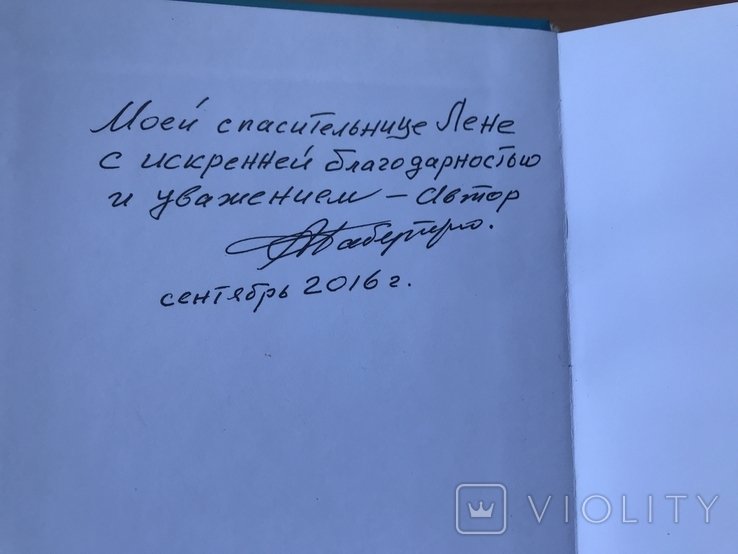 Моей спасительнице Лене
с искренней благодарностью
и уважением – автор
сентябрь 2016 г.
VIOLITY